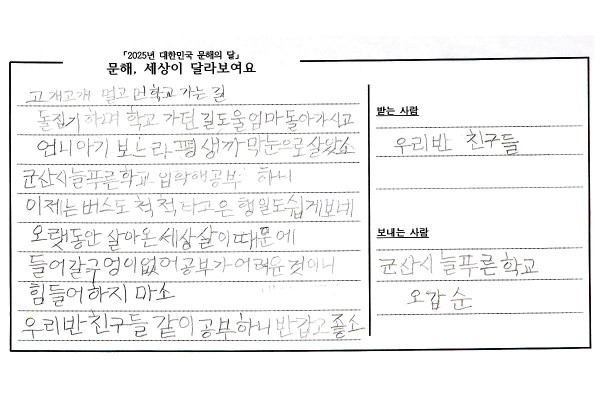 「2025년 대한민국 문해의 달」
문해, 세상이 달라보여요
고개고개 멀고 먼 학교 가는 길
돌집기 하며 학교 가던 길도 울 엄마 돌아가시고
언니 아기 보느라 평생 까막눈으로 살았소
군산시늘푸른학교 입학해 공부 하니
이제는 버스도 척척 타고 은행일도 쉽게 보네
오랫동안 살아온 세상살이 때문에
들어갈 구멍이 없어 공부가 어려운 것이니
힘들어 하지 마소
우리반 친구들 같이 공부하니 반갑고 좋소
받는 사람
우리반 친구들
보내는 사람
군산시 늘푸른 학교
오갑순